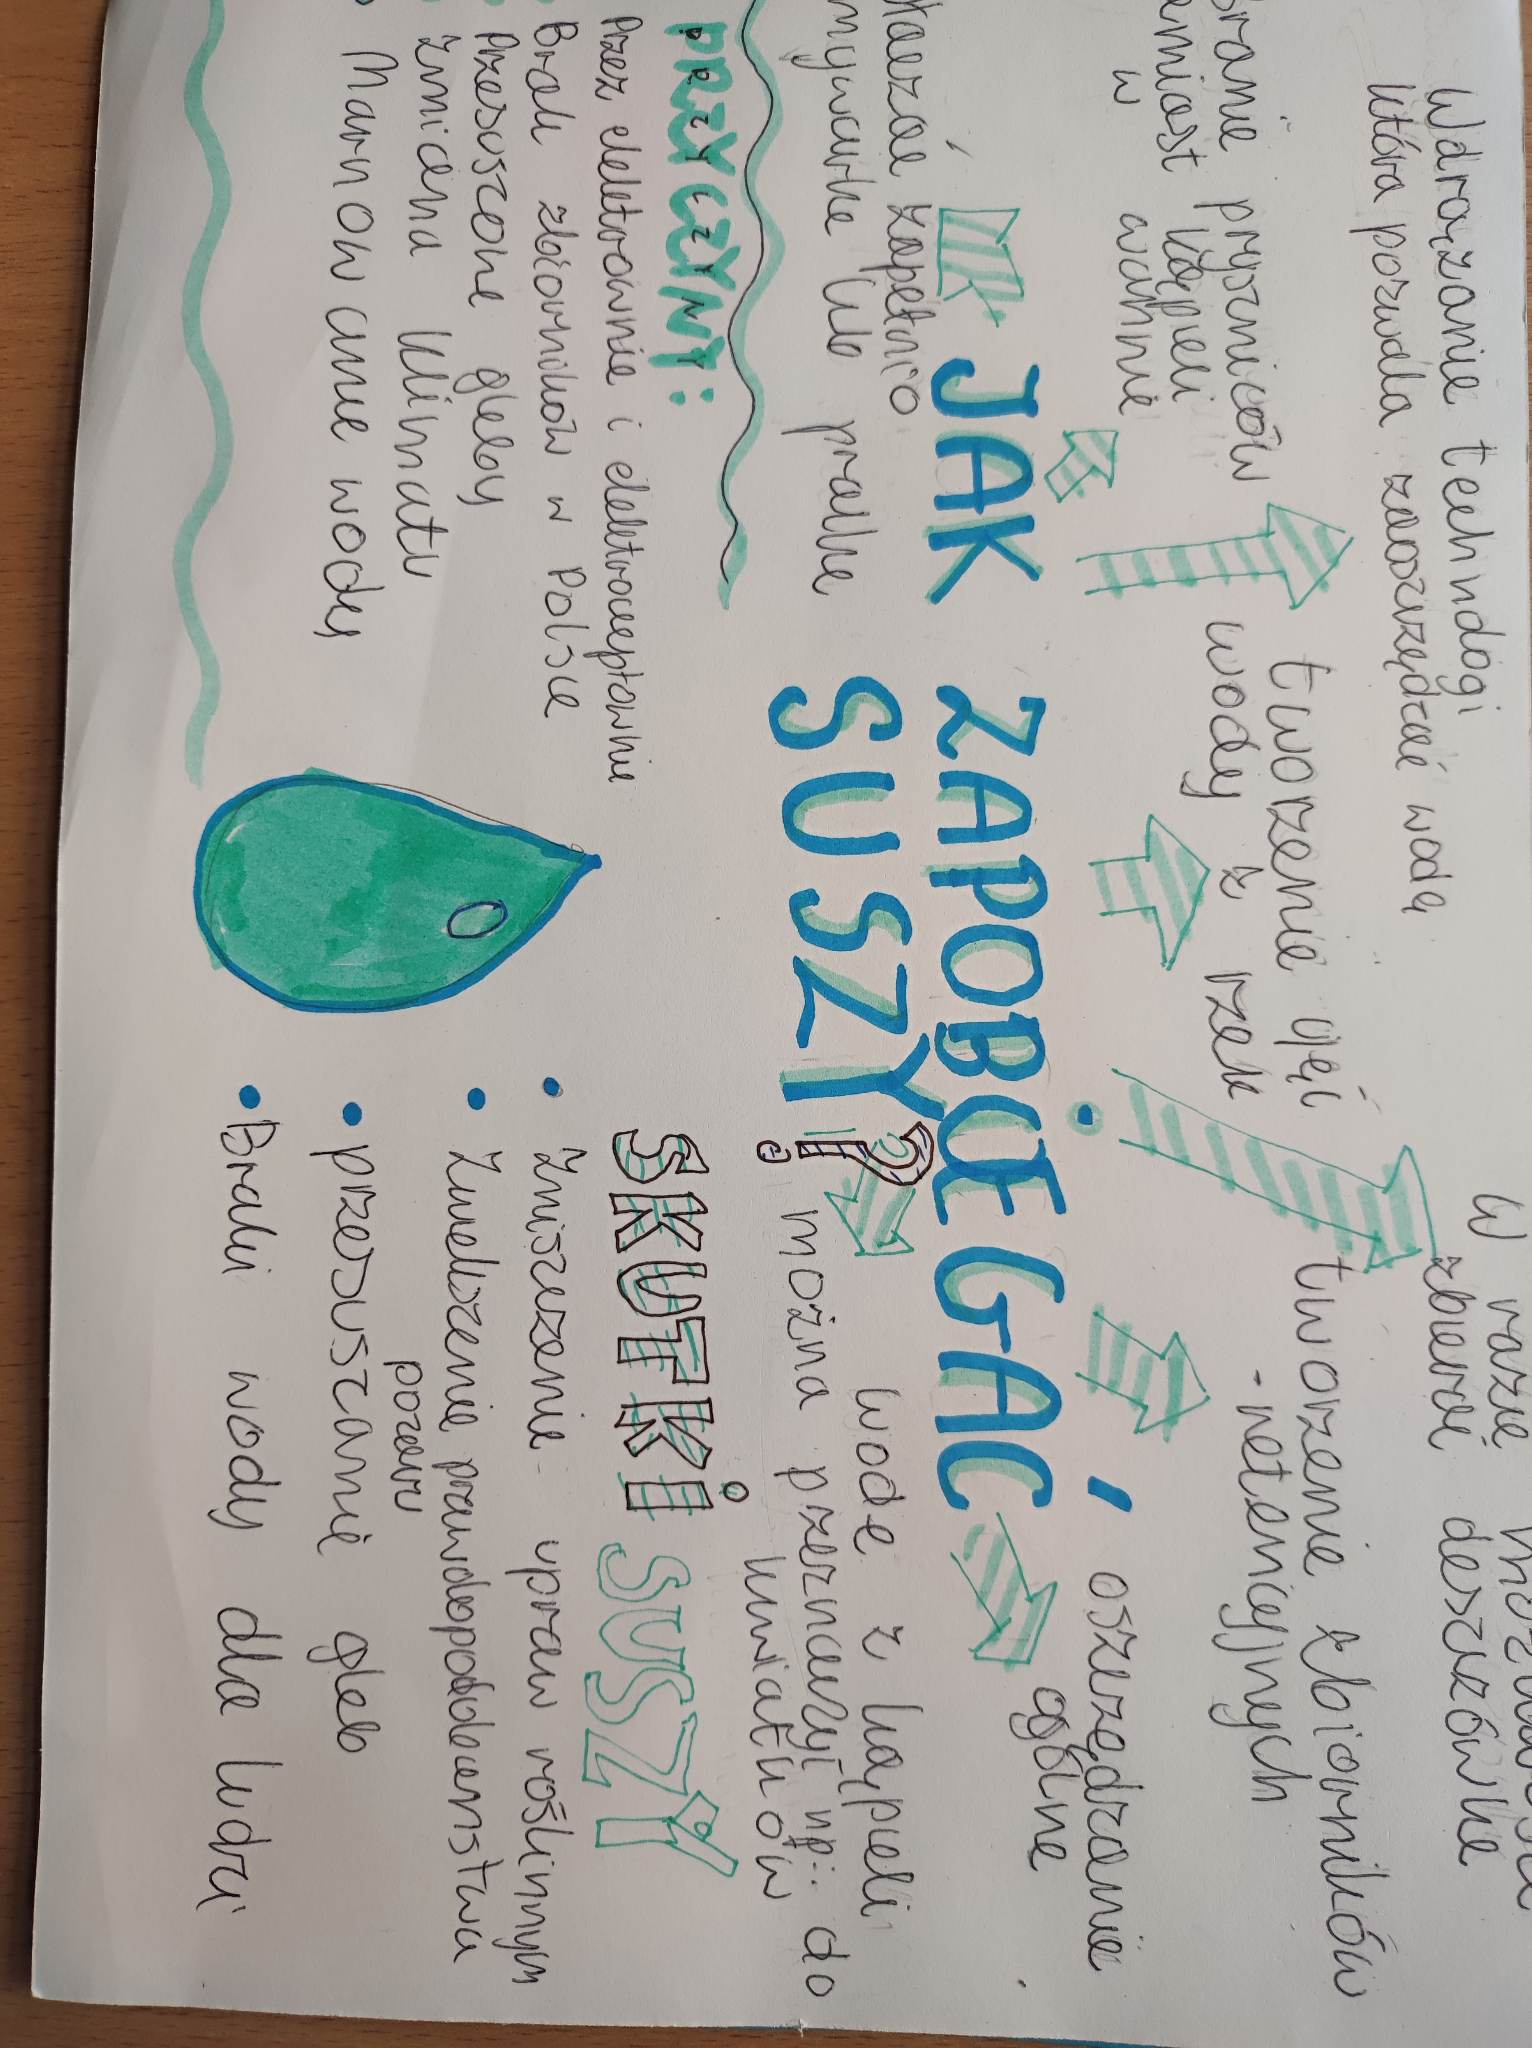 Wdrarzanie technologi
która pozwala zaoszczędzać wodą
W razie
zbierać deszczówke
branie pryszniców
zamiast kąpieli
w wannie
tworzenie ujęć
wody z rzek
tworzenie zbiorników
-netencyjnych
oszczędzanie
ogólne
JAK ZAPOBIEGAĆ
SUSZY?
właczać zapełnio
zmywarke lub pralke
wodę z kąpieli
można przeznaczyć np.: do
kwiatków
PRZYCZYNY:
Przez elektrownie i elektrociepłownie
Brak zbiorników w Polsce
Przesuszone gleby
Zmiana klimatu
Marnowanie wody
SKUTKI SUSZY
• Zniszczenie upraw roślinnym
• Zwiekszenie prawdopodobieństwa
pożaru
• przesuszanie gleb
• Braki wody dla ludzi